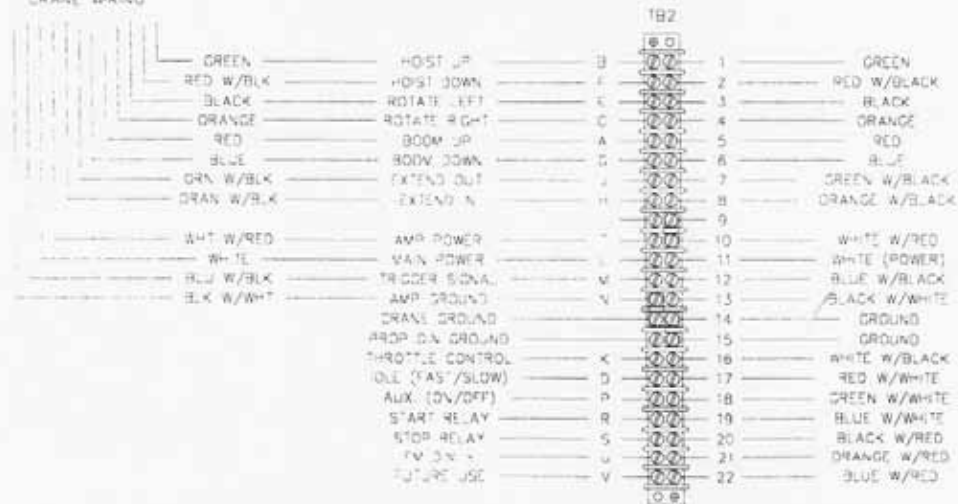 CRANE WIRING
TB2
GREEN HOIST UP B 1 GREEN
RED W/BLK HOIST DOWN F 2 RED W/BLACK
BLACK ROTATE LEFT E 3 BLACK
ORANGE ROTATE RIGHT C 4 ORANGE
RED BOOM UP A 5 RED
BLUE BOOM DOWN G 6 BLUE
GRN W/BLK EXTEND OUT J 7 GREEN W/BLACK
ORAN W/BLK EXTEND IN H 8 ORANGE W/BLACK
9
WHT W/RED AMP POWER T 10 WHITE W/RED
WHITE MAIN POWER L 11 WHITE (POWER)
BLU W/BLK TRIGGER SIGNAL M 12 BLUE W/BLACK
BLK W/WHT AMP GROUND N 13 BLACK W/WHITE
CRANE GROUND 14 GROUND
PROP DIN GROUND 15 GROUND
THROTTLE CONTROL K 16 WHITE W/BLACK
IDLE (FAST/SLOW) D 17 RED W/WHITE
AUX. (ON/OFF) P 18 GREEN W/WHITE
START RELAY R 19 BLUE W/WHITE
STOP RELAY S 20 BLACK W/RED
U 21 ORANGE W/RED
FUTURE USE V 22 BLUE W/RED